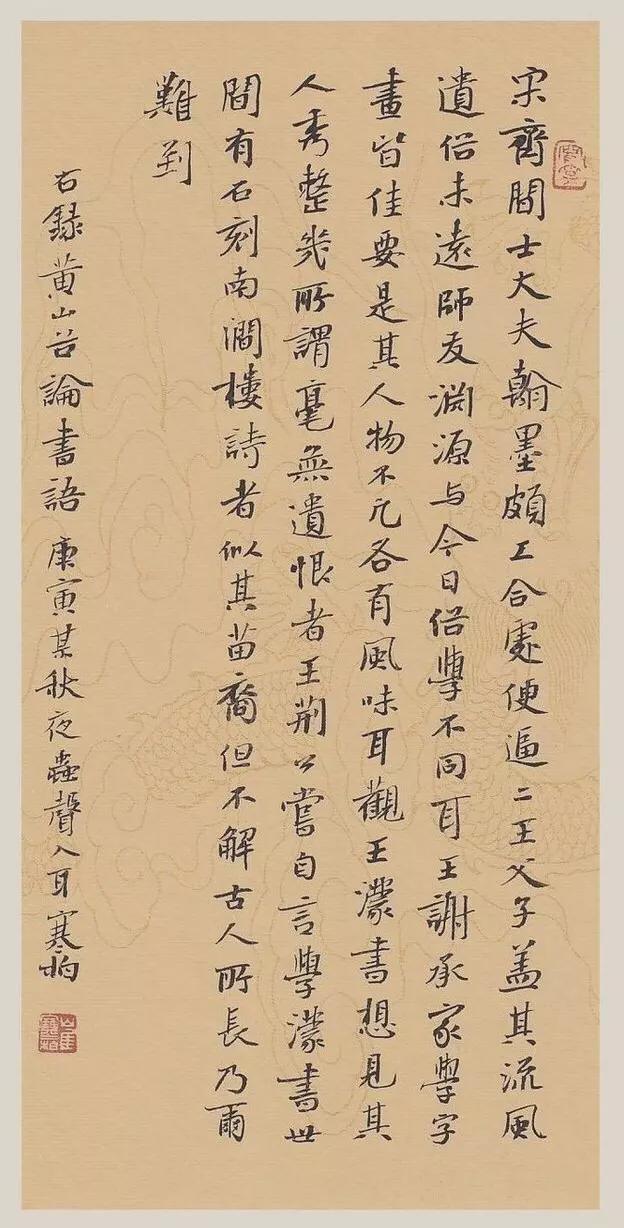 宋齊間士大夫翰墨頗工合處便逼二王父子蓋其流風
遺俗未遠師友淵源与今日俗學不同耳王謝承家學字
畫皆佳要是其人物不凡各有風味耳觀王濛書想見其
人秀整幾所謂毫無遺恨者王荊公嘗自言學濛書世
間有石刻南澗樓詩者似其苗裔但不解古人所長乃爾
難到
右錄黃山谷論書語 庚寅某秋夜蟲聲入耳 寒柏